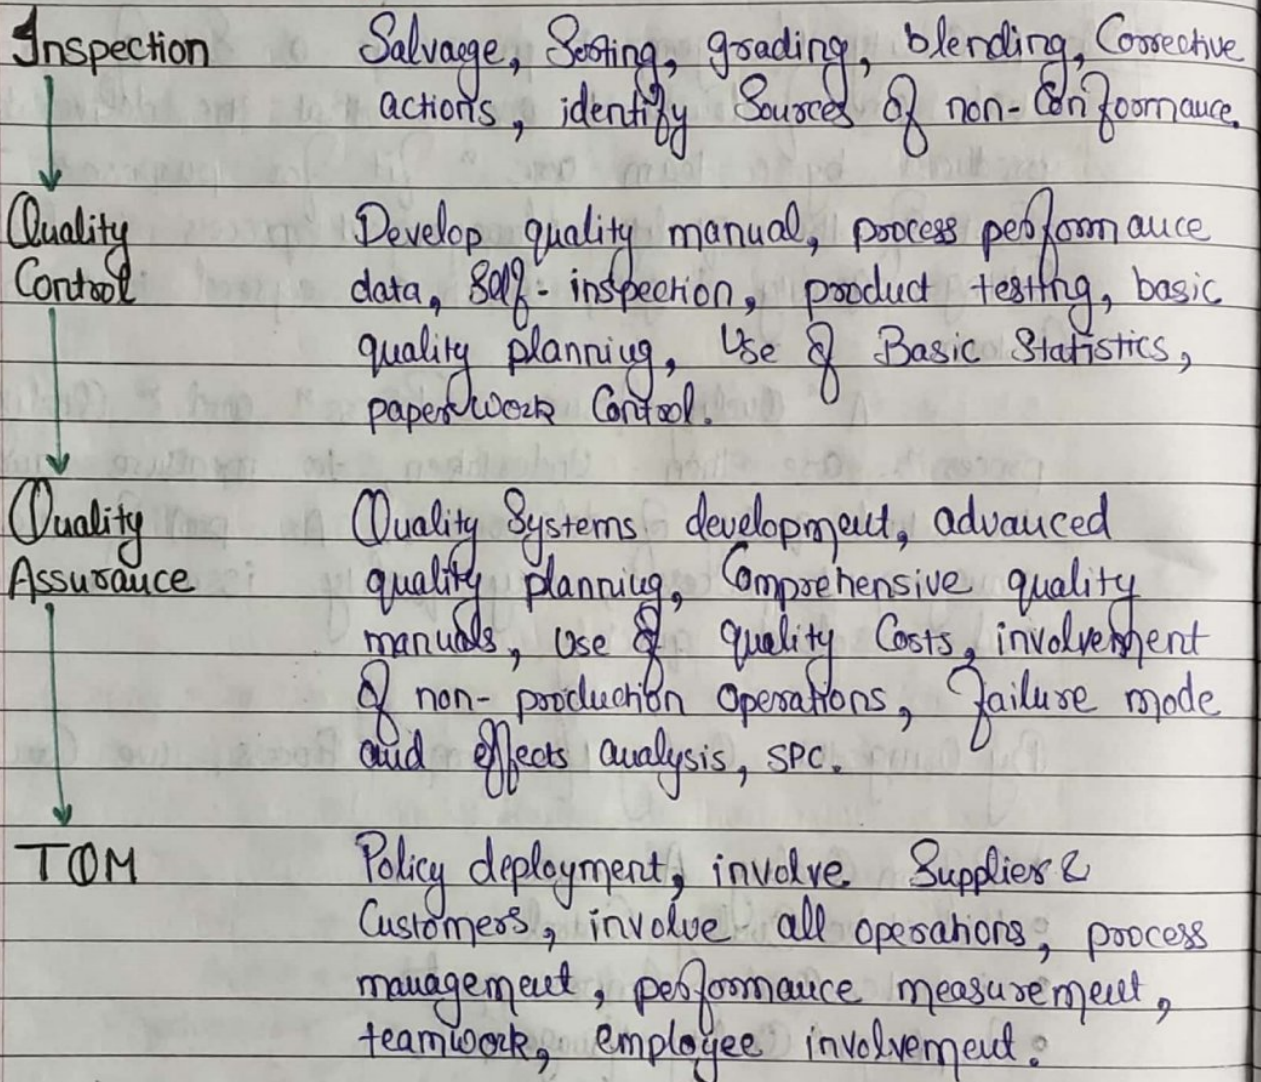 Inspection
Salvage, Sorting, grading, blending, Corrective
actions, identify Sources of non-Conformance.
Quality
Control
Develop quality manual, process performance
data, Self-inspection, product testing, basic
quality planning, Use of Basic Statistics,
paperwork Control.
Quality
Assurance
Quality Systems development, advanced
quality planning, Comprehensive quality
manuals, Use of quality Costs, involvement
of non-production Operations, Failure mode
and effects analysis, SPC.
TQM
Policy deployment, involve Supplier &
Customers, involve all operations, process
management, performance measurement,
teamwork, employee involvement.